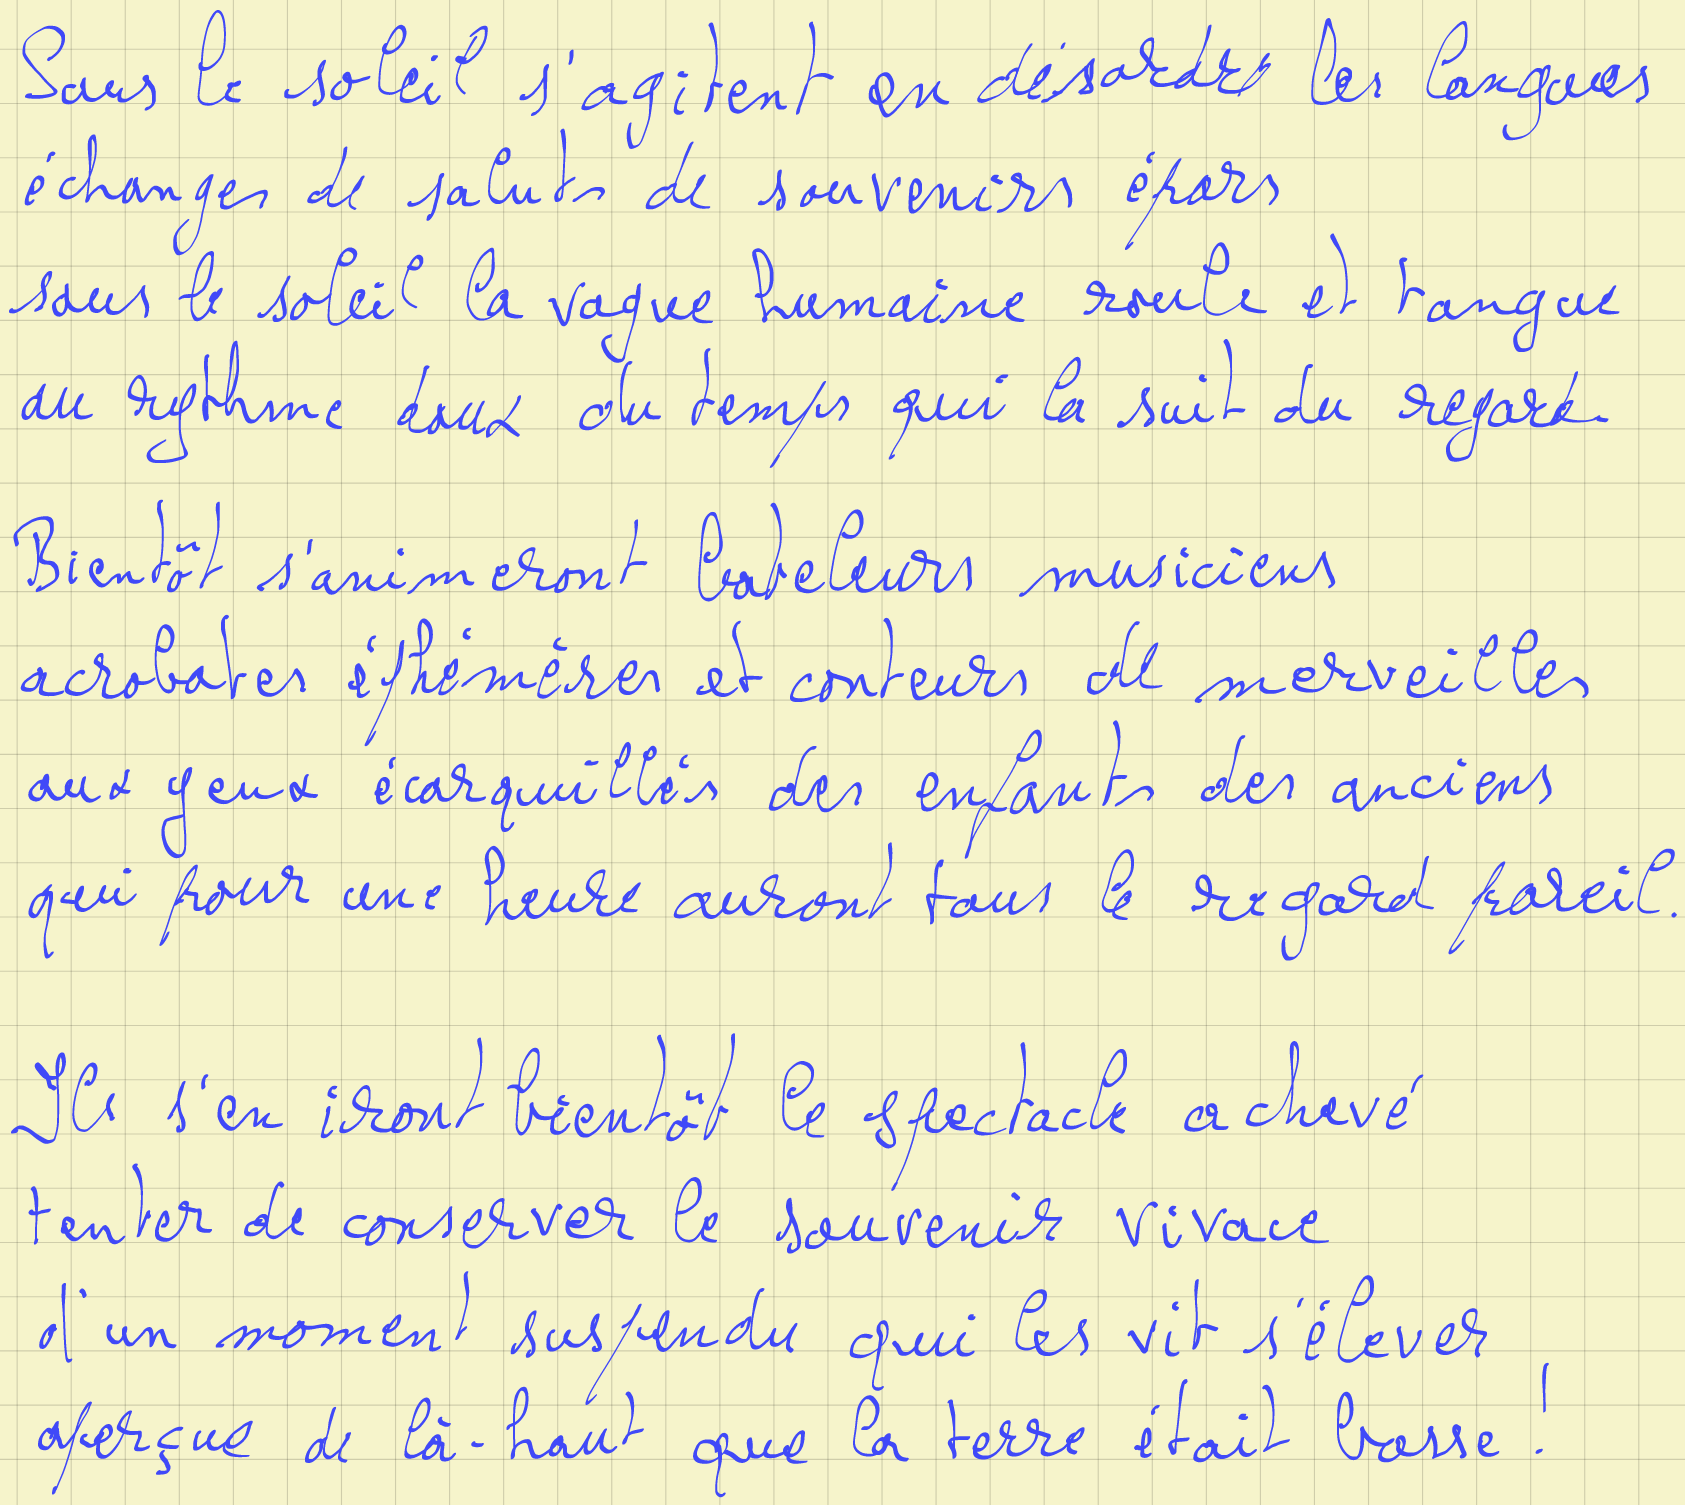 Sous le soleil s'agitent en désordre les langues
échanges de saluts de souvenirs épars
sous le soleil la vague humaine roule et tangue
au rythme doux du temps qui la suit du regard

Bientôt s'animeront bateleurs musiciens
acrobates éphémères et conteurs de merveilles
aux yeux écarquillés des enfants des anciens
qui pour une heure auront tous le regard pareil.

Ils s'en iront bientôt le spectacle achevé
tenter de conserver le souvenir vivace
d'un moment suspendu qui les vit s'élever
aperçue de là-haut que la terre était basse !